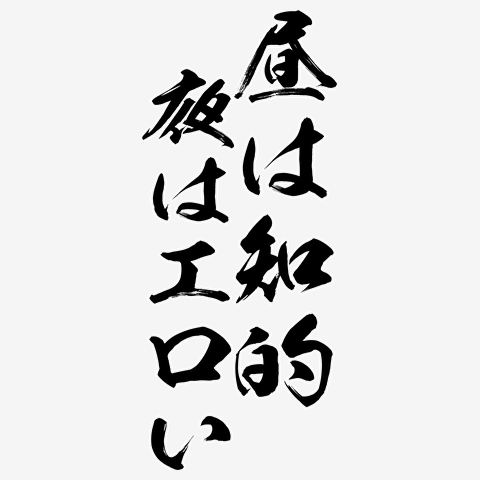 昼は知的
夜はエロい